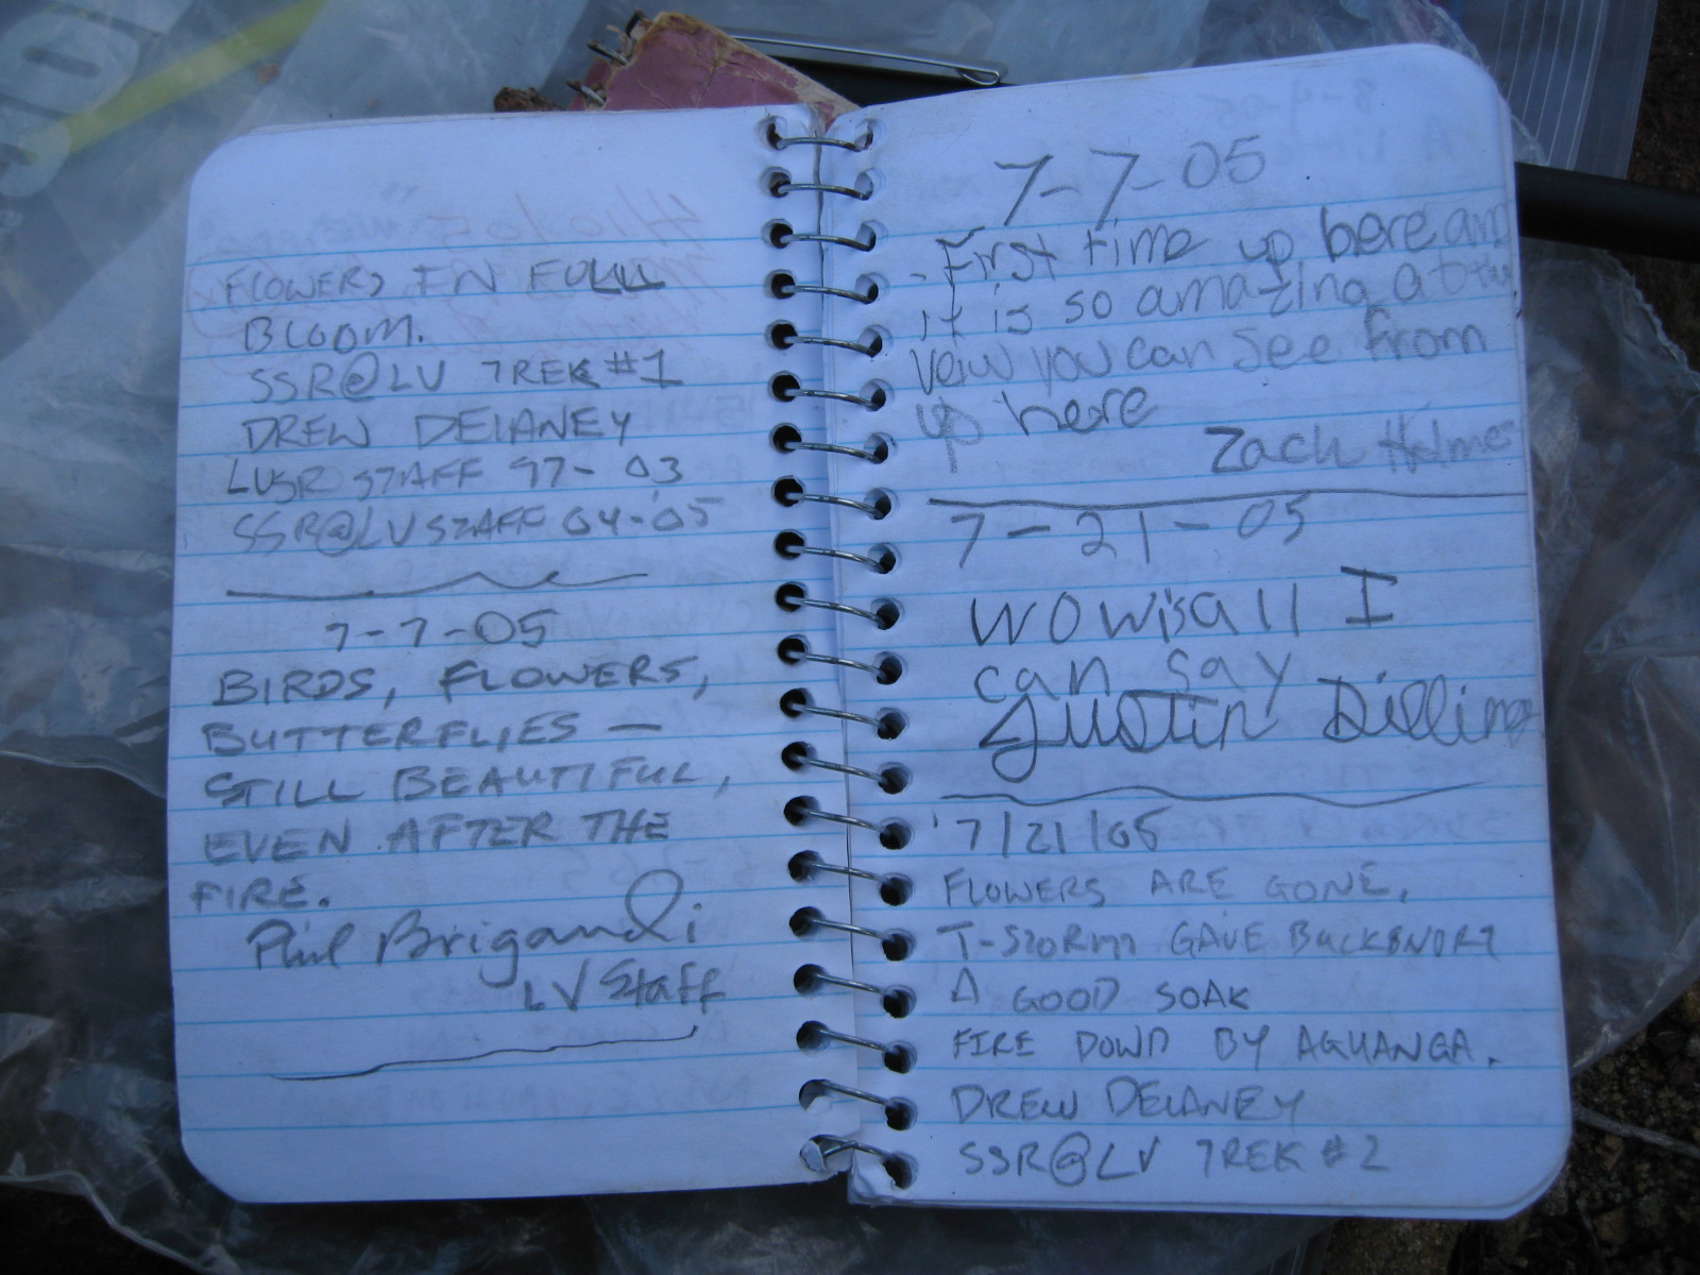 FLOWERS IN FULL
BLOOM.
SSR@LV TREK #1
DREW DELANEY
LVSR STAFF 97-03
SSR@LV STAFF 04-05
7-7-05
BIRDS, FLOWERS,
BUTTERFLIES —
STILL BEAUTIFUL,
EVEN AFTER THE
FIRE.
Phil Brigandi
LV Staff
7-7-05
- First time up here and
it is so amazing
veiw you can see from
up here
Zach
7-21-05
wow is all I
can say
Justin
7/21/05
FLOWERS ARE GONE,
T-STORM GAVE BUCKSNORT
A GOOD SOAK
FIRE DOWN BY AGUANGA.
DREW DELANEY
SSR@LV TREK #2